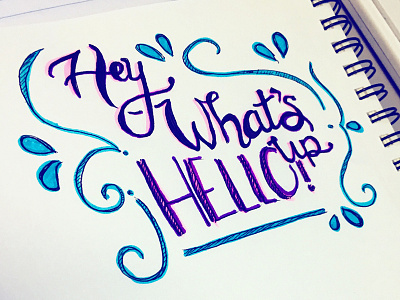 Hey
What's
up
HELLO!